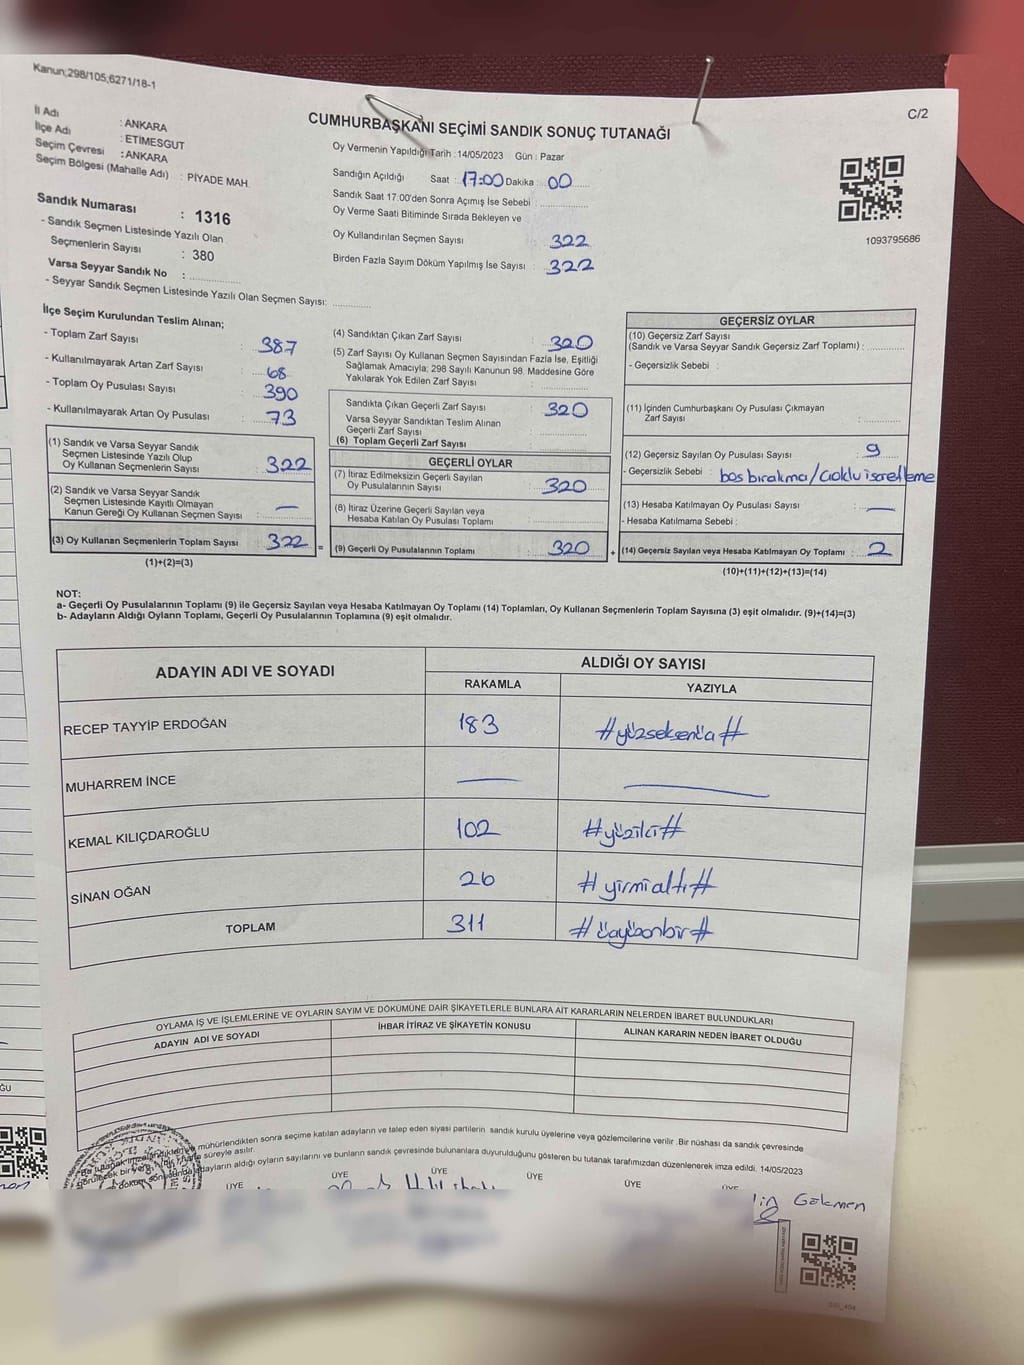 Kanun;298/105,6271/18-1
C/2
İl Adı : ANKARA
İlçe Adı : ETİMESGUT
Seçim Çevresi : ANKARA
Seçim Bölgesi (Mahalle Adı) : PİYADE MAH.
CUMHURBAŞKANI SEÇİMİ SANDIK SONUÇ TUTANAĞI
Oy Vermenin Yapıldığı Tarih : 14/05/2023 Gün : Pazar
Sandığın Açıldığı Saat : 17:00 Dakika : 00
Sandık Saat 17.00'den Sonra Açımış İse Sebebi :
Oy Verme Saati Bitiminde Sırada Bekleyen ve
Oy Kullandırılan Seçmen Sayısı : 322
Birden Fazla Sayım Döküm Yapılmış İse Sayısı : 322
1093795686
Sandık Numarası : 1316
- Sandık Seçmen Listesinde Yazılı Olan
Seçmenlerin Sayısı : 380
Varsa Seyyar Sandık No :
- Seyyar Sandık Seçmen Listesinde Yazılı Olan Seçmen Sayısı:
İlçe Seçim Kurulundan Teslim Alınan;
- Toplam Zarf Sayısı : 387
- Kullanılmayarak Artan Zarf Sayısı : 68
- Toplam Oy Pusulası Sayısı : 390
- Kullanılmayarak Artan Oy Pusulası : 73
(1) Sandık ve Varsa Seyyar Sandık
Seçmen Listesinde Yazılı Olup
Oy Kullanan Seçmenlerin Sayısı : 322
(2) Sandık ve Varsa Seyyar Sandık
Seçmen Listesinde Kayıtlı Olmayan
Kanun Gereği Oy Kullanan Seçmen Sayısı : —
(3) Oy Kullanan Seçmenlerin Toplam Sayısı : 322 =
(1)+(2)=(3)
(4) Sandıktan Çıkan Zarf Sayısı : 320
(5) Zarf Sayısı Oy Kullanan Seçmen Sayısından Fazla İse, Eşitliği
Sağlamak Amacıyla; 298 Sayılı Kanunun 98. Maddesine Göre
Yakılarak Yok Edilen Zarf Sayısı :
Sandıkta Çıkan Geçerli Zarf Sayısı : 320
Varsa Seyyar Sandıktan Teslim Alınan
Geçerli Zarf Sayısı :
(6) Toplam Geçerli Zarf Sayısı
GEÇERLİ OYLAR
(7) İtiraz Edilmeksizin Geçerli Sayılan
Oy Pusulalarının Sayısı : 320
(8) İtiraz Üzerine Geçerli Sayılan veya
Hesaba Katılan Oy Pusulası Toplamı :
(9) Geçerli Oy Pusulalarının Toplamı : 320 +
GEÇERSİZ OYLAR
(10) Geçersiz Zarf Sayısı
(Sandık ve Varsa Seyyar Sandık Geçersiz Zarf Toplamı) :
- Geçersizlik Sebebi :
(11) İçinden Cumhurbaşkanı Oy Pusulası Çıkmayan
Zarf Sayısı :
(12) Geçersiz Sayılan Oy Pusulası Sayısı : 9
- Geçersizlik Sebebi : boş bırakma/çoklu işaretleme
(13) Hesaba Katılmayan Oy Pusulası Sayısı : —
- Hesaba Katılmama Sebebi :
(14) Geçersiz Sayılan veya Hesaba Katılmayan Oy Toplamı : 2
(10)+(11)+(12)+(13)=(14)
NOT:
a- Geçerli Oy Pusulalarının Toplamı (9) ile Geçersiz Sayılan veya Hesaba Katılmayan Oy Toplamı (14) Toplamları, Oy Kullanan Seçmenlerin Toplam Sayısına (3) eşit olmalıdır. (9)+(14)=(3)
b- Adayların Aldığı Oyların Toplamı, Geçerli Oy Pusulalarının Toplamına (9) eşit olmalıdır.
ADAYIN ADI VE SOYADI
ALDIĞI OY SAYISI
RAKAMLA YAZIYLA
RECEP TAYYİP ERDOĞAN 183 #yüzseksenüç#
MUHARREM İNCE — —
KEMAL KILIÇDAROĞLU 102 #yüziki#
SİNAN OĞAN 26 #yirmialtı#
TOPLAM 311 #üçyüzonbir#
OYLAMA İŞ VE İŞLEMLERİNE VE OYLARIN SAYIM VE DÖKÜMÜNE DAİR ŞİKAYETLERLE BUNLARA AİT KARARLARIN NELERDEN İBARET BULUNDUKLARI
ADAYIN ADI VE SOYADI İHBAR İTİRAZ VE ŞİKAYETİN KONUSU ALINAN KARARIN NEDEN İBARET OLDUĞU
mühürlendikten sonra seçime katılan adayların ve talep eden siyasi partilerin sandık kurulu üyelerine veya gözlemcilerine verilir .Bir nüshası da sandık çevresinde
görülecek bir yere süreyle asılır.
adayların aldığı oyların sayılarını ve bunların sandık çevresinde bulunanlara duyurulduğunu gösteren bu tutanak tarafımızdan düzenlenerek imza edildi. 14/05/2023
ÜYE ÜYE ÜYE ÜYE ÜYE ÜYE
Gökmen